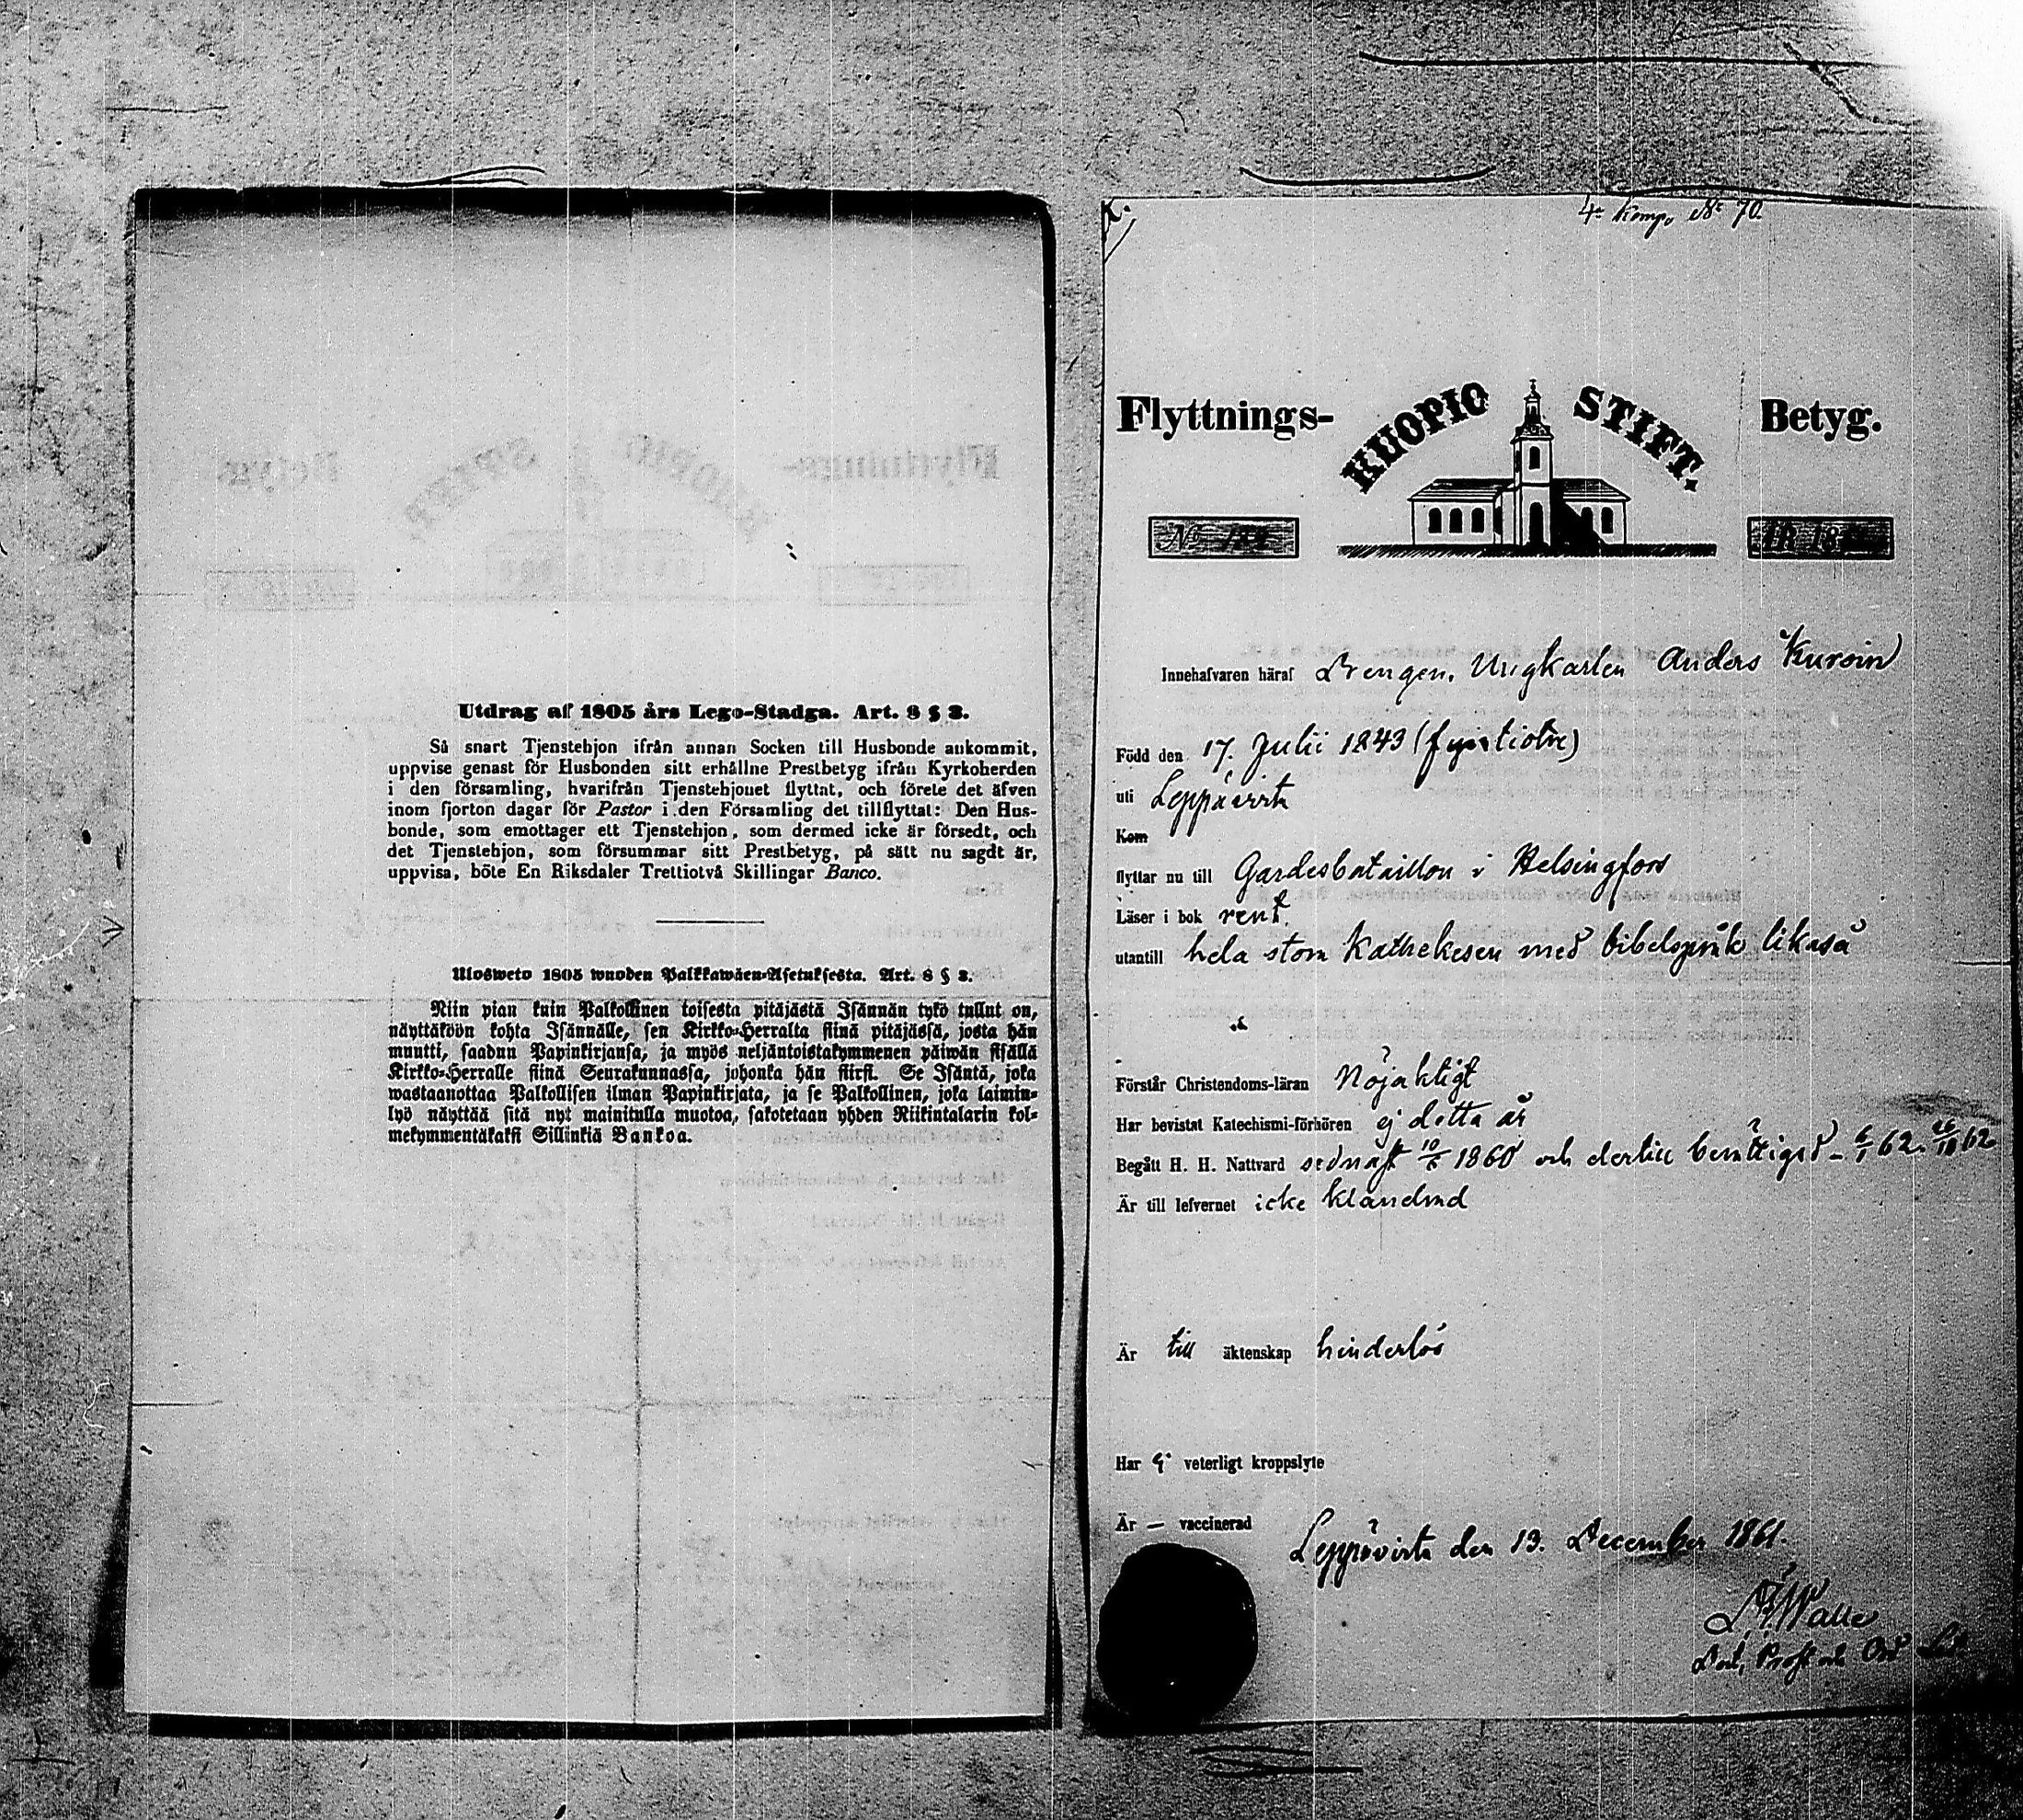 Utdrag af 1805 års Lego-Stadga. Art. 8 § 3.
Så snart Tjenstehjon ifrån annan Socken till Husbonde ankommit,
uppvise genast för Husbonden sitt erhållne Prestbetyg ifrån Kyrkoherden
i den församling, hvarifrån Tjenstehjonet flyttat, och förete det äfven
inom fjorton dagar för Pastor i den Församling det tillflyttat: Den Hus-
bonde, som emottager ett Tjenstehjon, som dermed icke är försedt, och
det Tjenstehjon, som försummar sitt Prestbetyg, på sätt nu sagdt är,
uppvisa, böte En Riksdaler Trettiotvå Skillingar Banco.
Ulosweto 1805 wuoden Palkkawäen-Asetuksesta. Art. 8 § 3.
Niin pian kuin Palkollinen toisesta pitäjästä Isännän tykö tullut on,
näyttäköön kohta Isännälle, sen Kirkko-Herralta siinä pitäjässä, josta hän
muutti, saadun Papinkirjansa, ja myös neljäntoistakymmenen päiwän sisällä
Kirkko-Herralle siinä Seurakunnassa, johonka hän siirsi. Se Isäntä, joka
wastaanottaa Palkollisen ilman Papinkirjata, ja se Palkollinen, joka laimin-
lyö näyttää sitä nyt mainitulla muotoa, sakotetaan yhden Riikintalarin kol-
mekymmentäkaksi Sillinkiä Bankoa.
4e Komp. No 70
Flyttnings- KUOPIO STIFT. Betyg.
No
Innehafvaren häraf Drengen, Ungkarlen Anders Kuroin
Född den 17. Julii 1843 (fyratiotre)
uti Leppävirta
Kom
flyttar nu till Gardesbataillon i Helsingfors
Läser i bok rent
utantill hela stora Kathekesen med bibelspråk likaså
Förstår Christendoms-läran Nöjaktigt
Har bevistat Katechismi-förhören ej detta år
Begått H. H. Nattvard sednast 1860 och dertill berättigad
Är till lefvernet icke klandrad
Är till äktenskap hinderlös
Har ej veterligt kroppslyte
Är — vaccinerad
Leppävirta den 13. December 1861.